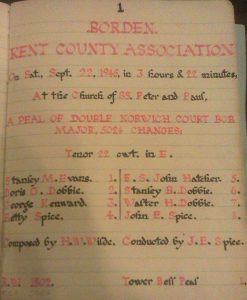 1
BORDEN.
KENT COUNTY ASSOCIATION
On Sat., Sept. 22, 1945, in 3 hours & 22 minutes,
At the Church of SS. Peter and Paul,
A PEAL OF DOUBLE NORWICH COURT BOB
MAJOR, 5024 CHANGES;
Tenor 22 cwt. in E.
Stanley M. Evans. 1. E. S. John Hatcher. 5.
Doris G. Dobbie. 2. Stanley B. Dobbie. 6.
George Kenward. 3. Walter H. Dobbie. 7.
Betty Spice. 4. John E. Spice. 8.
Composed by H. W. Wilde. Conducted by J. E. Spice.
Tower Bell Peal